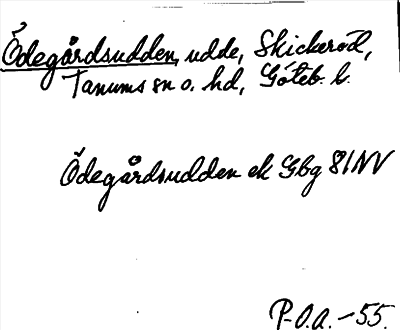 Ödegårdsudden, udde, Skickeröd,
Tanums sn o. hd, Göteb. l.
Ödegårdsudden ek Gbg 81NV
P-O.A. -55.